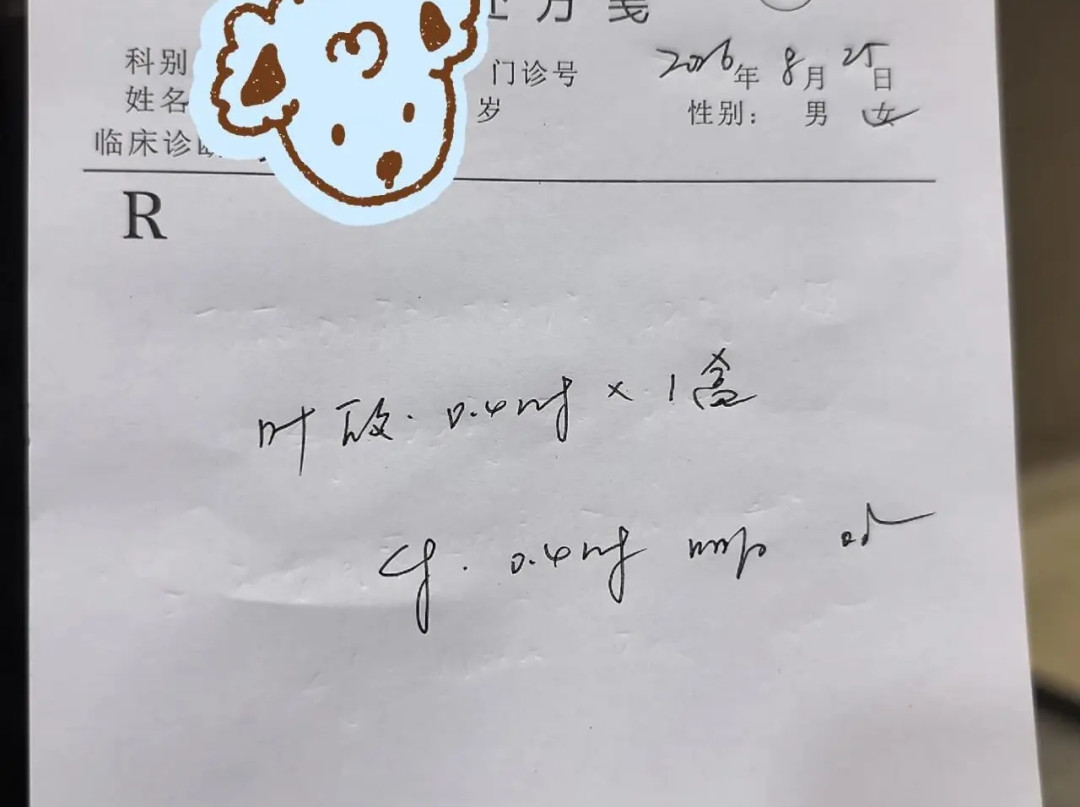 方笺
科别 门诊号 2016年8月25日
姓名 岁 性别： 男 女
临床诊断
R
叶酸. 0.4mg × 1盒
0.4mg po qd